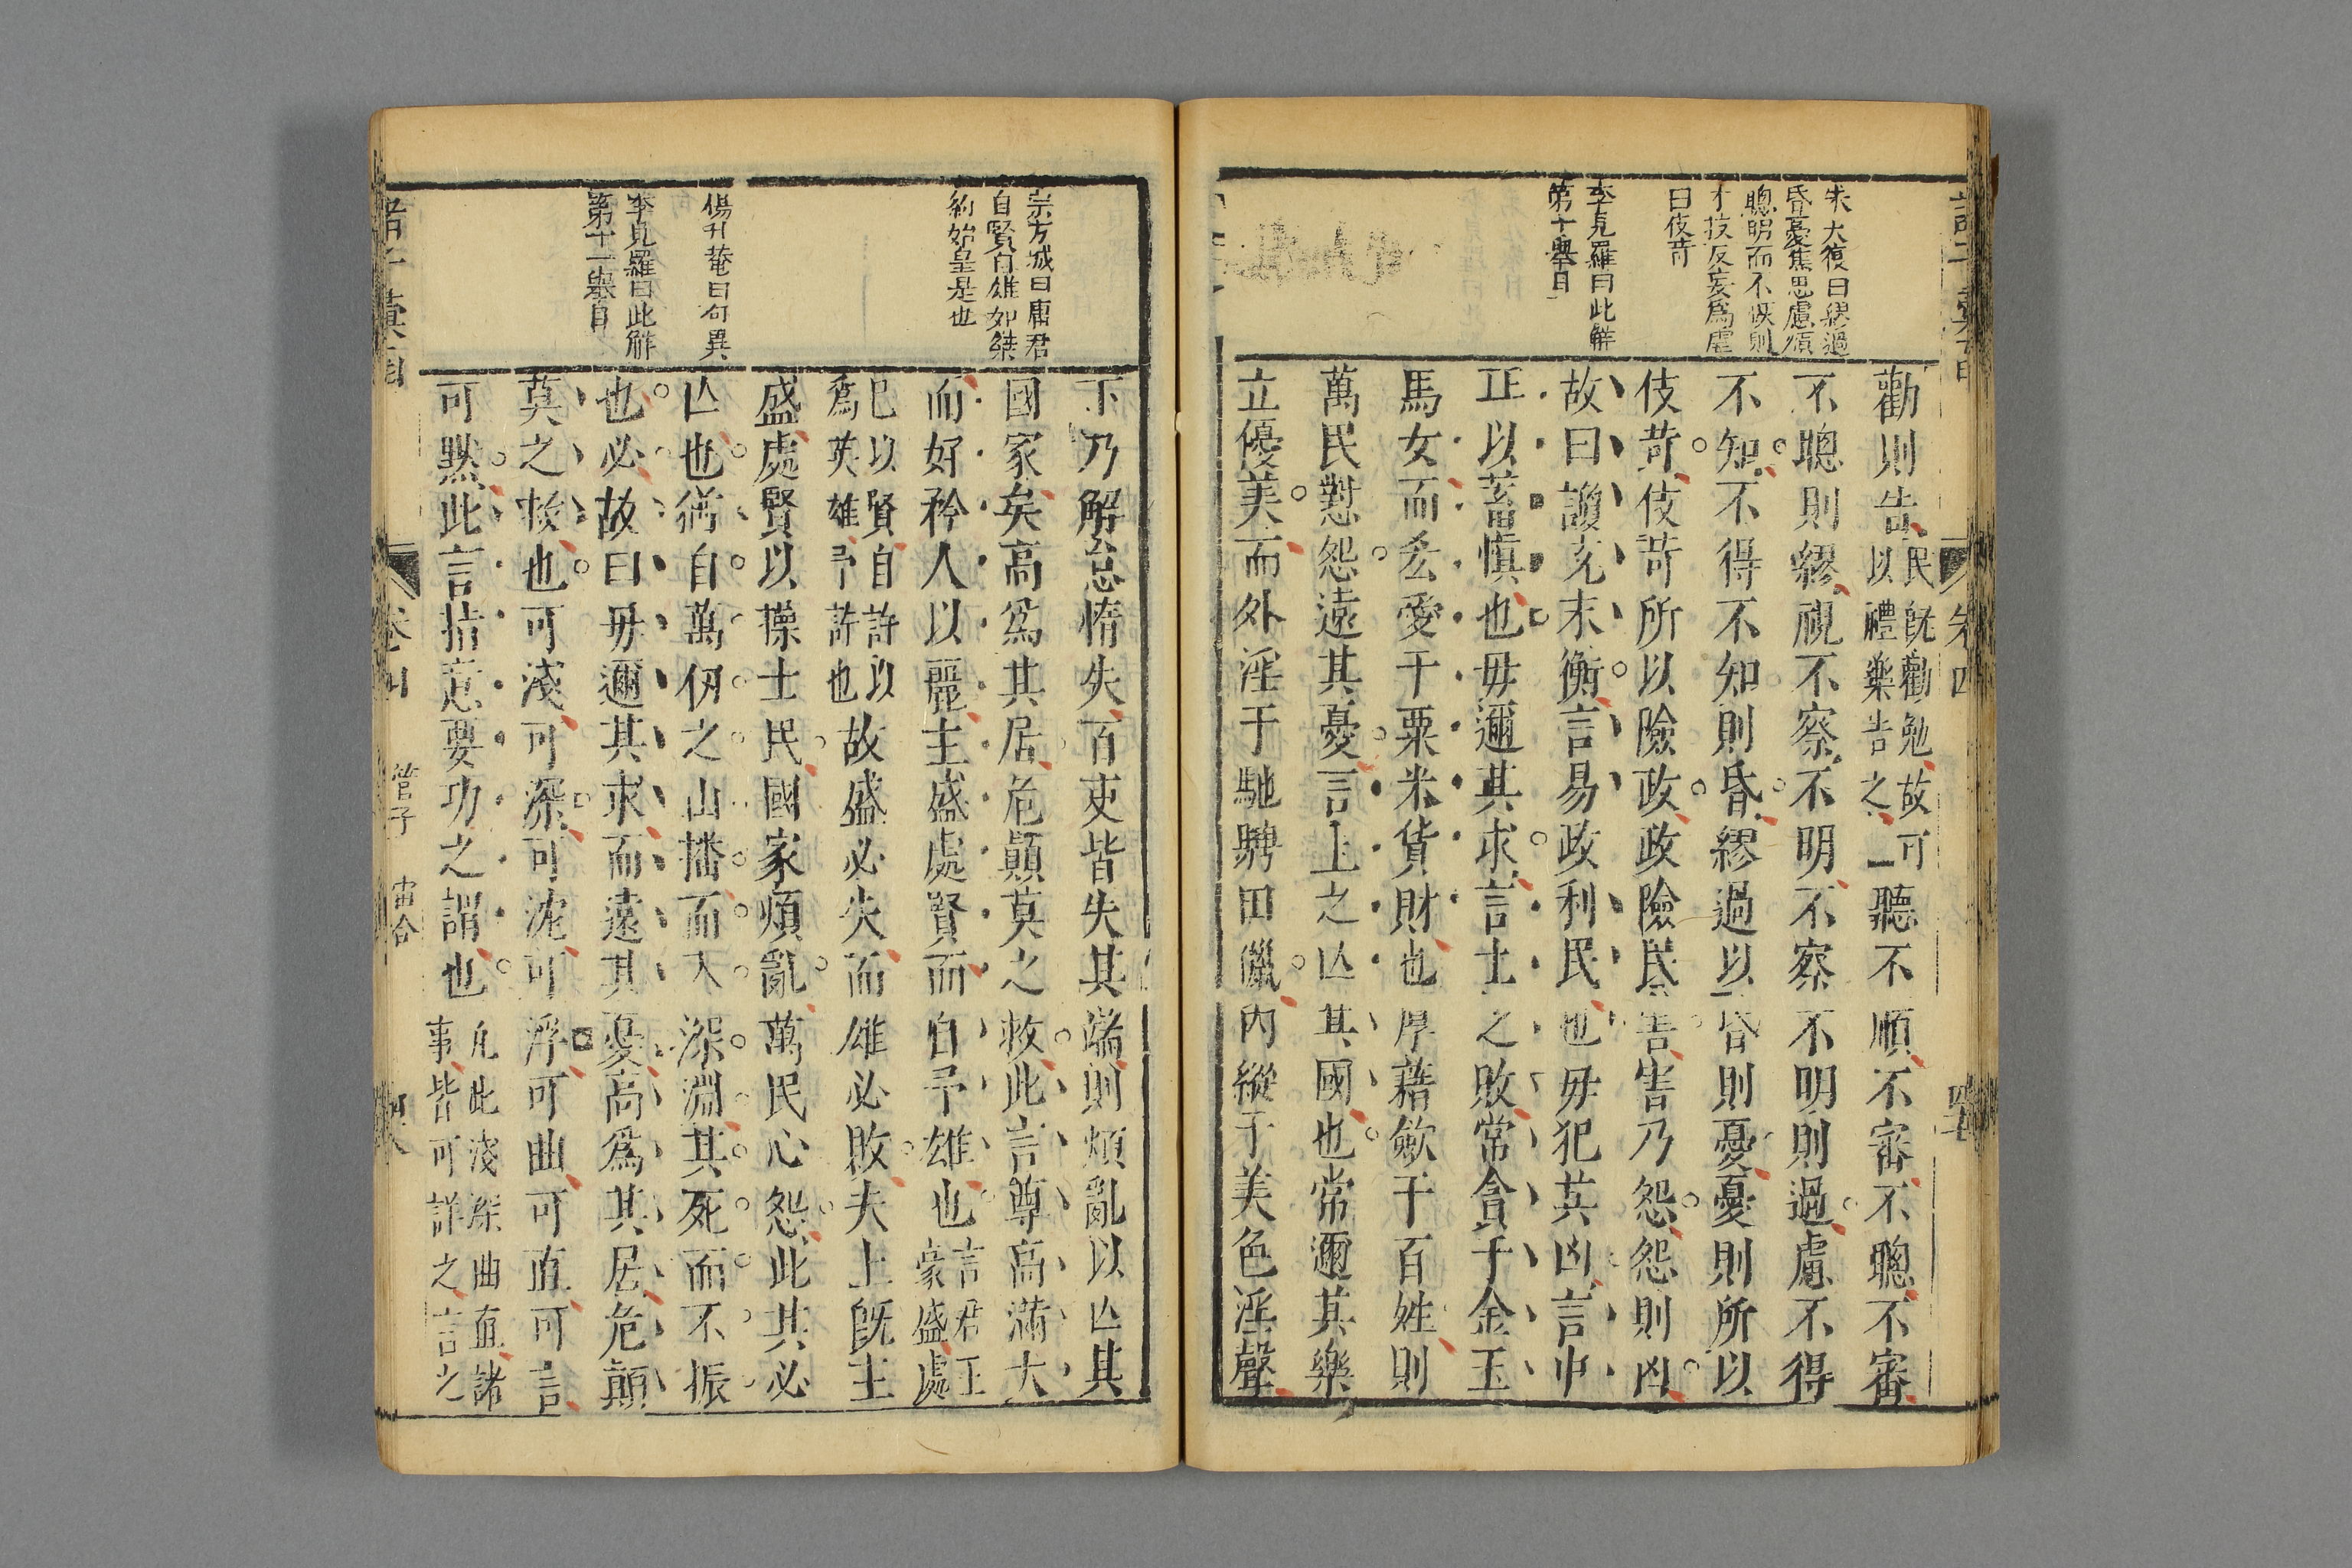 朱大復曰繆過
昏憂蕉思慮煩
聰明而不悞則
才技反妄爲虐
曰伎苛
李見羅曰此解
第十舉目
勸則告民既勸勉故可以禮樂告之一聽不順不審不聰不審
不聰則繆視不察不明不察不明則過慮不得
不知不得不知則昏繆過以昏則憂憂則所以
伎苛伎苛所以險政政險民害害乃怨怨則凶
故曰讂充末衡言易政利民也毋犯其凶言中
正以蓄慎也毋邇其求言上之敗常貪于金玉
馬女而吝愛于粟米貨財也厚藉斂于百姓則
萬民懟怨遠其憂言上之亾其國也常邇其樂
立優美而外淫于馳騁田儠內縱于美色淫聲
卷四
宗方城曰庸君
自賢自雄如桀
紂始皇是也
楊升菴曰句異
李見羅曰此解
第十一舉目
下乃解怠惰失百吏皆失其端則煩亂以亾其
國家矣高爲其居危顚莫之救此言尊高滿大
而好矜人以麗主盛處賢而自予雄也言君王豪盛處
已以賢自許以爲英雄予許也故盛必失而雄必敗夫上既主
盛處賢以操士民國家煩亂萬民心怨此其必
亾也猶自萬仞之山播而入深淵其死而不振
也必故曰毋邇其求而遠其憂高爲其居危顚
莫之救也可淺可深可沈可浮可曲可直可言
可默此言指意要功之謂也凡此淺深曲直諸事皆可詳之言之
卷四
管子
宙合